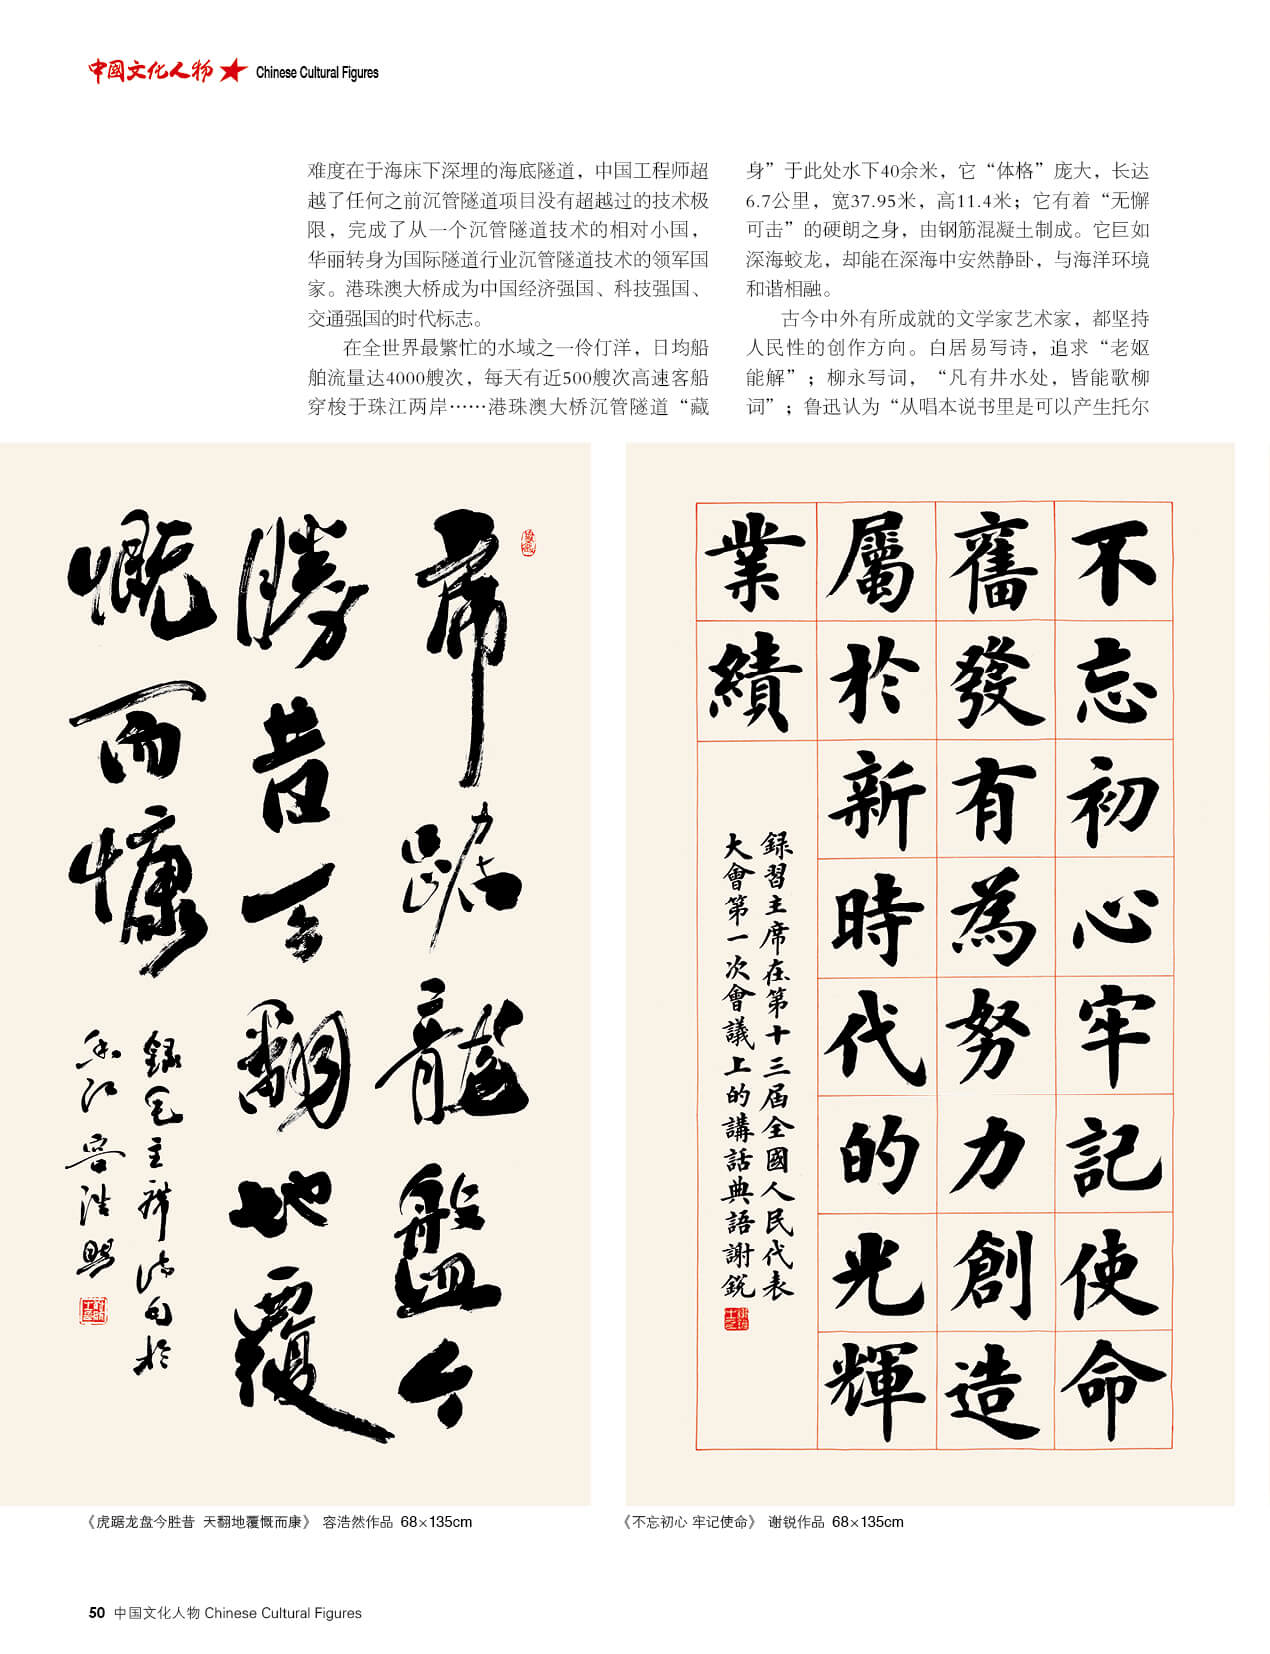 中國文化人物 Chinese Cultural Figures
难度在于海床下深埋的海底隧道，中国工程师超
越了任何之前沉管隧道项目没有超越过的技术极
限，完成了从一个沉管隧道技术的相对小国，
华丽转身为国际隧道行业沉管隧道技术的领军国
家。港珠澳大桥成为中国经济强国、科技强国、
交通强国的时代标志。
在全世界最繁忙的水域之一伶仃洋，日均船
舶流量达4000艘次，每天有近500艘次高速客船
穿梭于珠江两岸……港珠澳大桥沉管隧道“藏
身”于此处水下40余米，它“体格”庞大，长达
6.7公里，宽37.95米，高11.4米；它有着“无懈
可击”的硬朗之身，由钢筋混凝土制成。它巨如
深海蛟龙，却能在深海中安然静卧，与海洋环境
和谐相融。
古今中外有所成就的文学家艺术家，都坚持
人民性的创作方向。白居易写诗，追求“老妪
能解”；柳永写词，“凡有井水处，皆能歌柳
词”；鲁迅认为“从唱本说书里是可以产生托尔
虎踞龍盤今
勝昔天翻地覆
慨而慷
錄毛主席詩句於
香江容浩然
不忘初心牢記使命
舊發有為努力創造
屬於新時代的光輝
業績
錄習主席在第十三屆全國人民代表
大會第一次會議上的講話典語謝銳
《虎踞龙盘今胜昔 天翻地覆慨而康》 容浩然作品 68×135cm
《不忘初心 牢记使命》 谢锐作品 68×135cm
50 中国文化人物 Chinese Cultural Figures